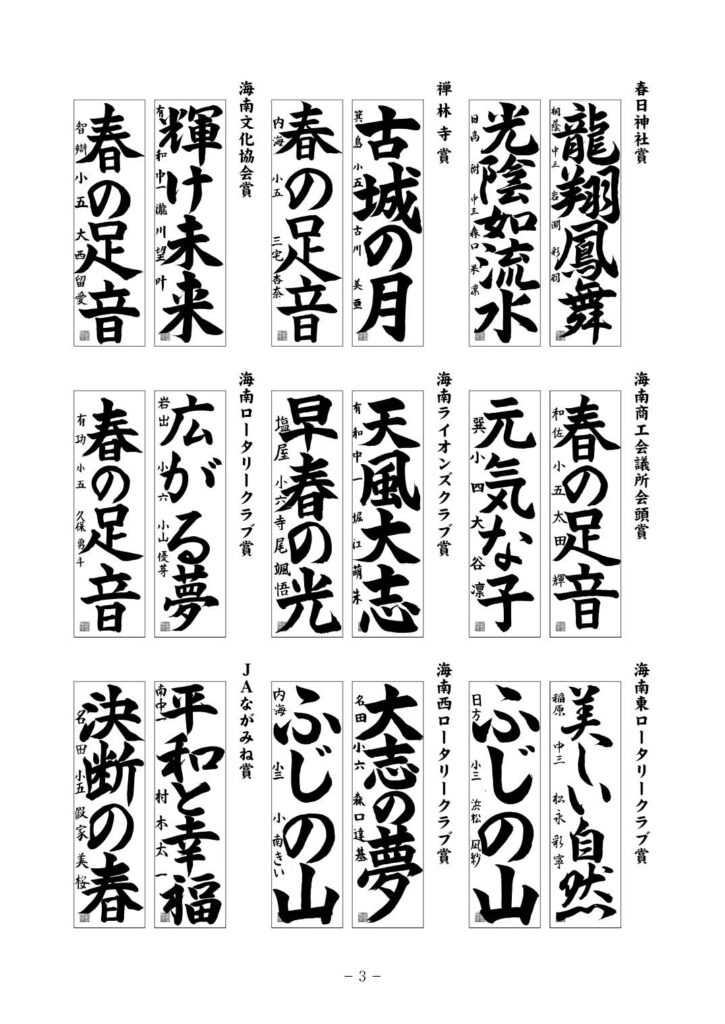 春日神社賞
龍翔鳳舞
桐蔭 中三 岩淵 彩羽
光陰如流水
日高附 中三 森口 果凜
禅林寺賞
古城の月
箕島 小五 古川 美亜
春の足音
内海 小五 三宅杏奈
海南文化協会賞
輝け未来
有和 中一 瀧川 望叶
春の足音
智辯 小五 大西留愛
海南商工会議所会頭賞
春の足音
和佐 小五 太田 輝
元気な子
巽 小四 大谷 凛
海南ライオンズクラブ賞
天風大志
有和 中一 堀江 萌朱
早春の光
塩屋 小六 寺尾颯悟
海南ロータリークラブ賞
広がる夢
岩出 小六 小山 優芽
春の足音
有功 小五 久保 勇斗
海南東ロータリークラブ賞
美しい自然
稲原 中三 松永 彩寧
ふじの山
日方 小三 浜松 凪紗
海南西ロータリークラブ賞
大志の夢
名田 小六 森口達基
ふじの山
内海 小三 小南きい
JAながみね賞
平和と幸福
南中一 村木太一
決断の春
名田 小五 家 美桜
- 3 -